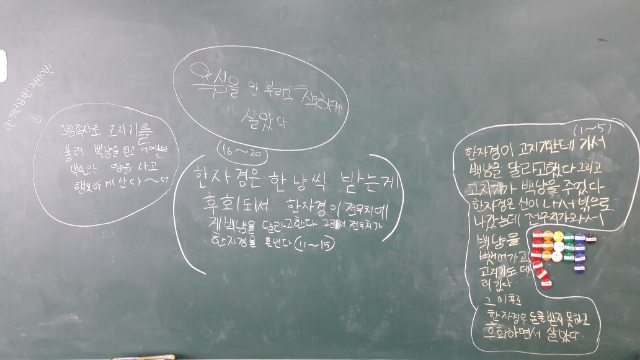 욕심을 안 부리고
살았다
(16~20)
그림족자로 고지기를
불러 백냥을 받고
행복하게 산다~
한자경은 한냥씩 받는게
후회되서 한자경이 전우치에
게 백냥을 달라고한다 그래서 전우치가
한자경을 혼낸다 (11~15)
(1~5)
한자경이 고지기한테 가서
백냥을 달라고했다 그리고
고지기가 백냥을 주었다
한자경은 신이 나서 밖으로
나갔는데 전우치가와서
백냥을
뺏어가고
고지기도 데
려갔다
그 이후로
한자경은 돈을 받지 못하고
후회하면서 살았다